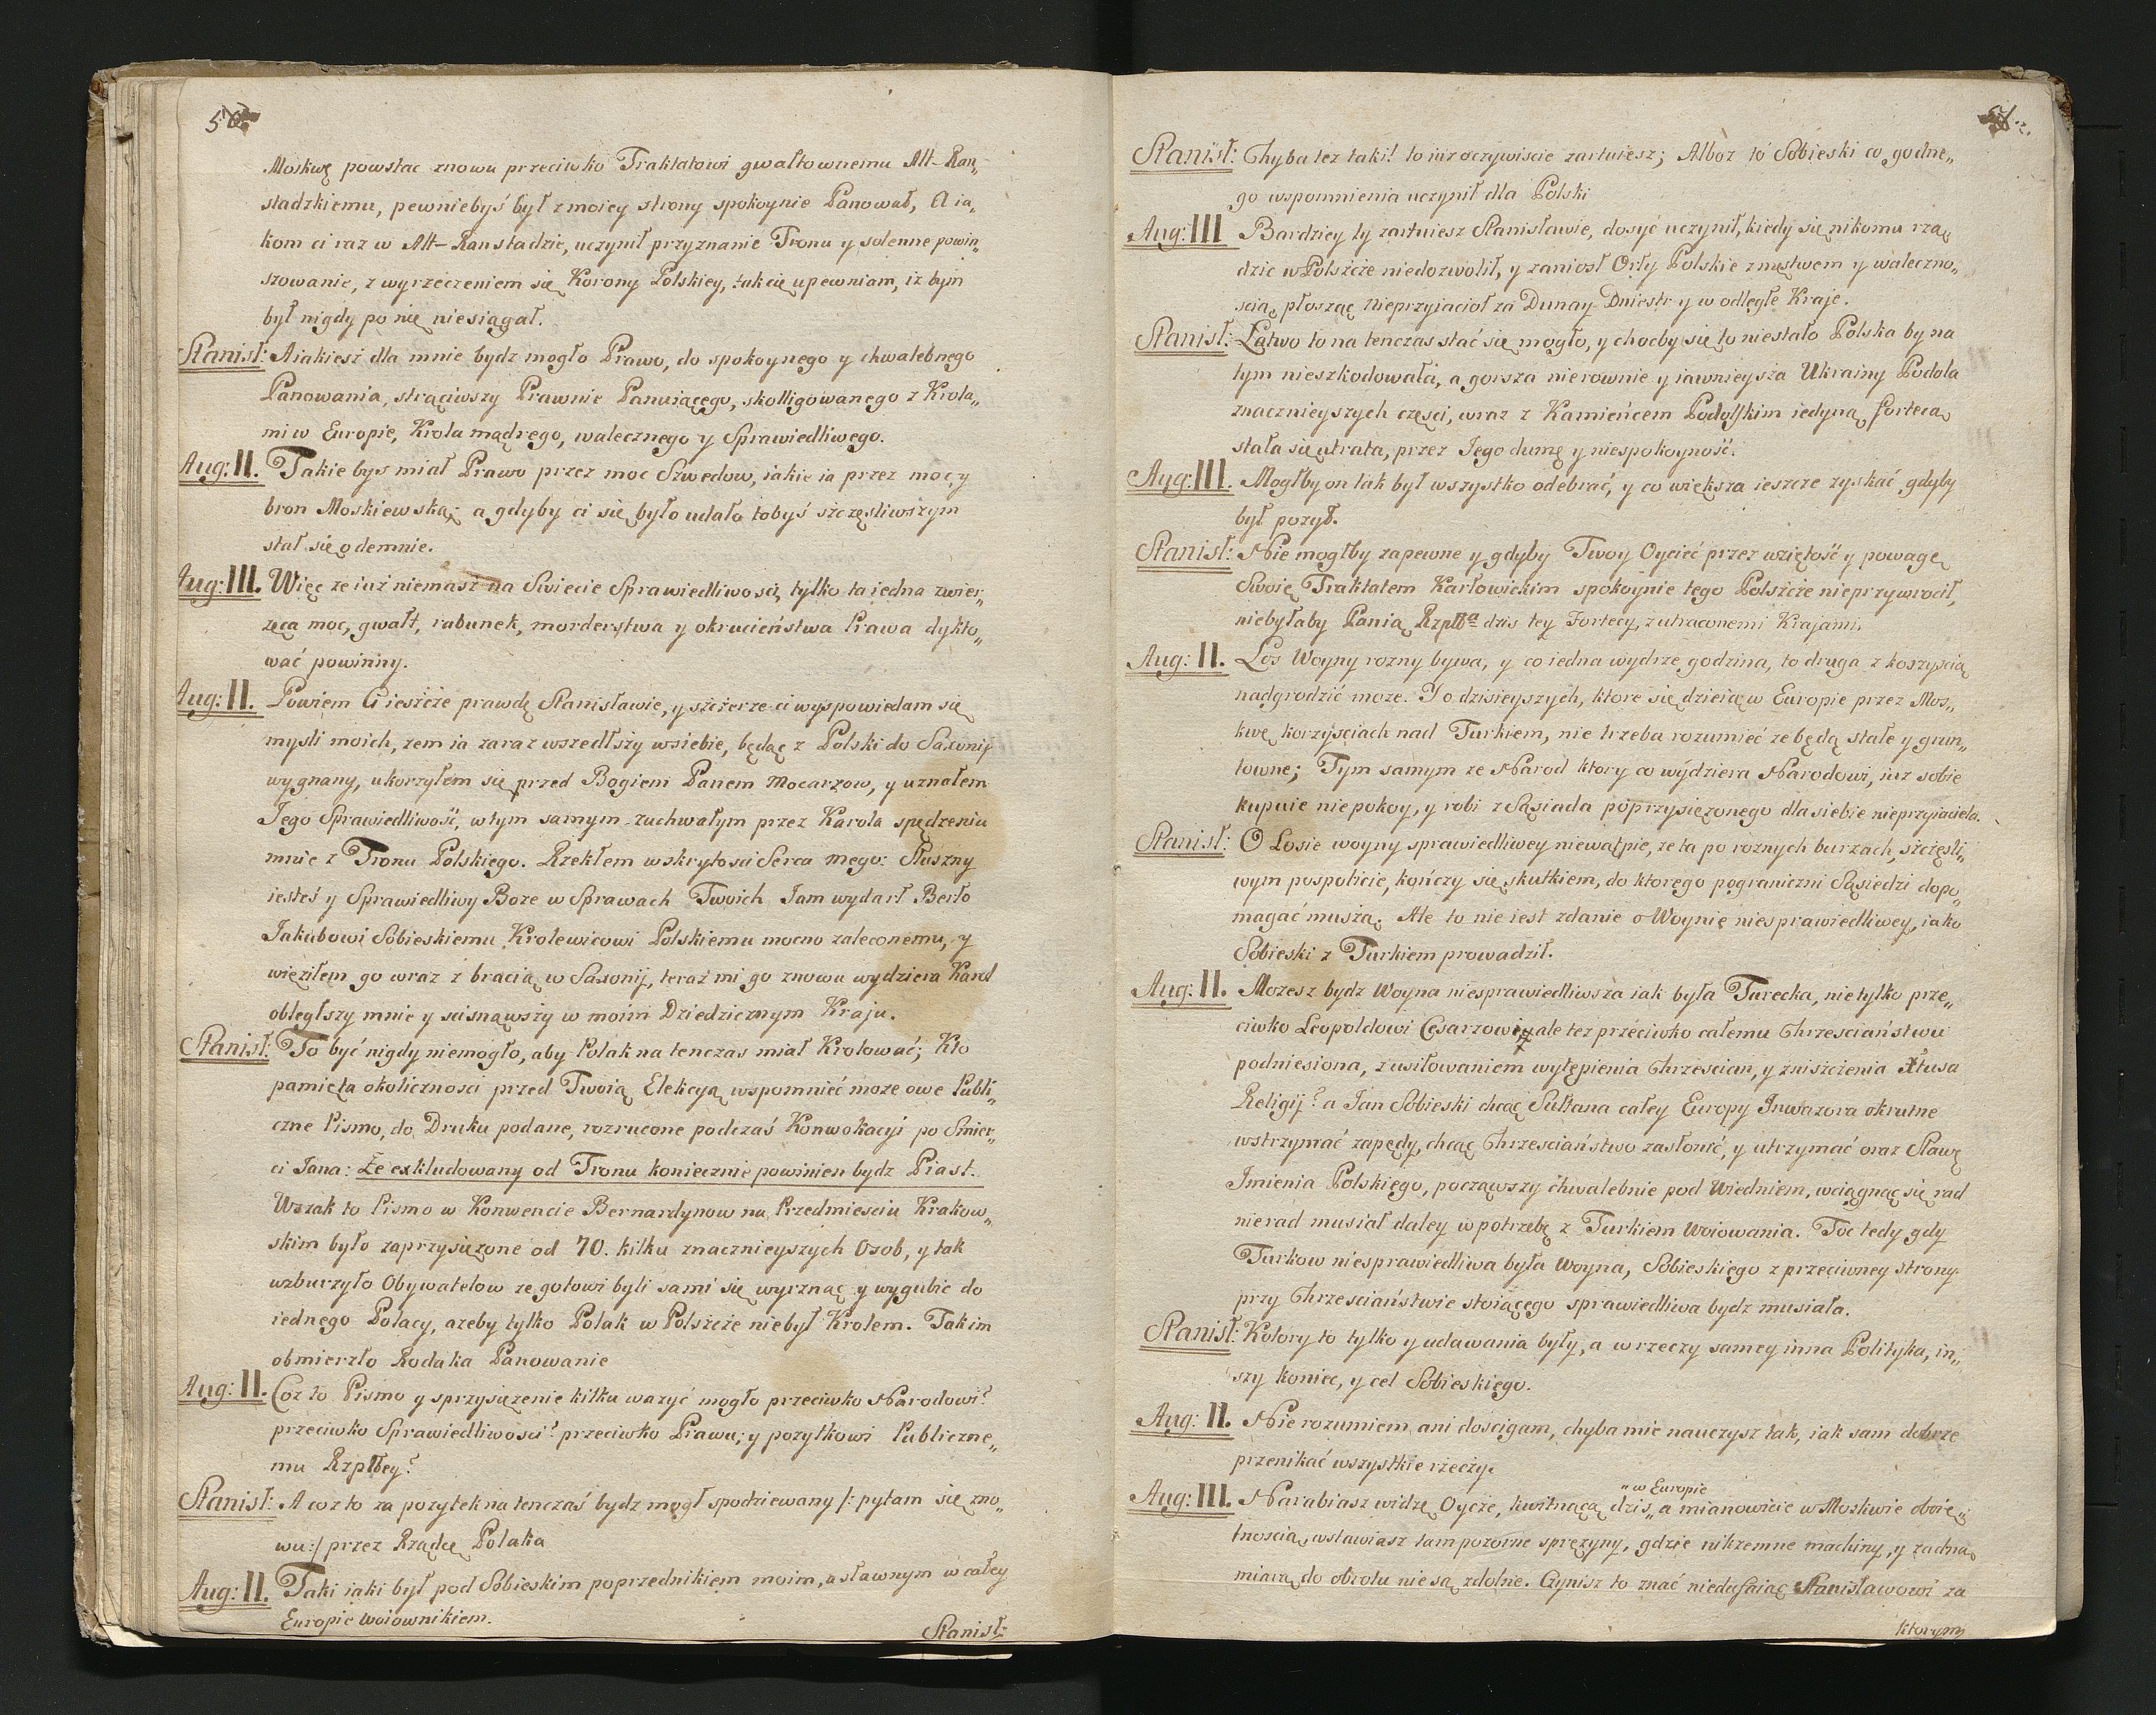 Moskwę powstac znowu przeciwko Traktatowi gwałtownemu Alt-Ran„
stadzkiemu, pewniebyś był z moiey strony spokoynie Panował, A ia„
kom ci raz w Alt-Ranstadzie, uczynił przyznanie Tronu y solenne powin„
szowanie, z wyrzeczeniem się Korony Polskiey, tak cię upewniam, iz bym
był nigdy po nię niesiągał.
Stanisł: A iakiesz dla mnie bydz mogło Prawo, do spokoynego y chwalebnego
Panowania, strąciwszy Prawnie Panuiącego, skolligowanego z Krola„
mi w Europie, Krola mądrego, walecznego y Sprawiedliwego.
Aug: II. Takie bys miał Prawo przez moc Szwedow, iakie ia przez moc y
bron Moskiewską; a gdyby ci się było udało tobyś szczęsliwszym
stał się odemnie.
Aug: III. Więc ze iuż niemasz na Swiecie Sprawiedliwosci, tylko ta iedna zwier„
zęca moc, gwałt, rabunek, morderstwa y okrucieństwa Prawa dykto„
wać powinny.
Aug: II. Powiem Ci ieszcze prawdę Stanisławie, y szczerze ci wyspowiedam się
mysli moich, zem ia zaraz wszedłszy w siebie, będąc z Polski do Saxonij
wygnany, ukorzyłem się przed Bogiem Panem Mocarzow, y uznałem
Jego Sprawiedliwość, w tym samym zuchwałym przez Karola spędzeniu
mnie z Tronu Polskiego. Rzekłem w skrytosci Serca mego: Słuszny
iesteś y Sprawiedliwy Boze w Sprawach Twoich Jam wydarł Berło
Jakubowi Sobieskiemu Krolewicowi Polskiemu mocno zaleconemu, y
więziłem go wraz z bracią w Saxonij, teraz mi go znowu wydziera Karol
obległszy mnie y scisnąwszy w moim Dziedzicznym Kraju.
Stanisł: To być nigdy niemogło, aby Polak na tenczas miał Krolować; Kto
pamięta okolicznosci przed Twoią Elekcyą wspomnieć może owe Publi„
czne Pismo, do Druku podane, rozrucone podczaś Konwokacyi po Smier„
ci Jana: Że exkludowany od Tronu koniecznie powinien bydz Piast.
Wszak to Pismo w Konwencie Bernardynow na Przedmiesciu Krakow„
skim było zaprzysiężone od 70. kilku znacznieyszych Osob, y tak
wzburzyło Obywatelow ze gotowi byli sami się wyrznąc y wygubic do
iednego Polacy, azeby tylko Polak w Polszcze niebył Krolem. Takim
obmierzło Rodaka Panowanie
Aug: II. Coz to Pismo y sprzysięzenie kilku wazyć mogło przeciwko Narodowi?
przeciwko Sprawiedliwosci? przeciwko Prawu; y pozytkowi Publiczne„
mu Rzpltey?
Stanisł: A coz to za pozytek na tenczaś bydz mogł spodziewany /: pytam się zno„
wu:/ przez Rządcę Polaka
Aug: II. Taki iaki był pod Sobieskim poprzednikiem moim, a sławnym w całey
Europie woiownikiem.
Stanisł:
Stanisł: Chyba tez taki! to iuz oczywiscie zartuiesz; Alboz tó Sobieski co godne„
go wspomnienia uczynił dla Polski
Aug: III Bardziey ty zartuiesz Stanisławie, dosyć uczynił, kiedy się nikomu rzą„
dzic w Polszcze niedozwolił, y zaniosł Orły Polskie z męstwem y waleczno„
scią, płosząc nieprzyiacioł za Dunay Dniestr y w odległe Kraje.
Stanisł: Łatwo to na tenczas stać się mogło, y chocby się to niestało Polska by na
tym nieszkodowała, a gorsza nierownie y iawnieysza Ukrainy Podola
znacznieyszych części, wraz z Kamieńcem Podolskim iedyną fortecą
stała się utrata, przez Jego dumę y niespokoyność.
Aug: III. Mogłby on tak był wszystko odebrać, y co większa ieszcze zyskać, gdyby
był pozył.
Stanisł: Nie mogłby zapewne y gdyby Twoy Oyciec przez wziętość y powagę
Swoię Traktatem Karłowickim spokoynie tego Polszcze nieprzywrocił,
niebyłaby Panią Rzplta dzis tey Fortecy, z utraconemi Krajami.
Aug: II. Los Woyny rozny bywa, y co iedna wydrze godzina, to druga z korzyscią
nadgrodzić moze. I o dzisieyszych, ktore się dzieią w Europie przez Mos„
kwę korzyściach nad Turkiem, nie trzeba rozumieć ze będą stałe y grun„
towne; Tym samym ze Narod ktory co wydziera Narodowi, iuz sobie
kupuie niepokoy, y robi z Sąsiada poprzysięzonego dla siebie nieprzyiaciela.
Stanisł: O Losie woyny sprawiedliwey niewątpie, ze ta po roznych burzach, szczęsli„
wym pospolicie, kończy się skutkiem, do ktorego pograniczni Sąsiedzi dopo„
magać muszą. Ale to nie iest zdanie o Woynie niesprawiedliwey, iako
Sobieski z Turkiem prowadził.
Aug: II. Mozesz bydz Woyna niesprawiedliwsza iak była Turecka, nietylko prze„
ciwko Leopoldowi Cesarzowi, ale tez przeciwko całemu Chrzesciaństwu
podniesiona, z usiłowaniem wytępienia Chrzescian, y zniszczenia Xtusa
Religij? a Jan Sobieski chcąc Sułtana całey Europy Inwazora okrutne
wstrzymać zapędy, chcąc Chrzesciaństwo zasłonić, y utrzymać oraz Sławę
Imienia Polskiego, począwszy chwalebnie pod Wiedniem, wciągnąć się rad
nierad musiał daley w potrzebę z Turkiem Woiowania. Toc tedy gdy
Turkow niesprawiedliwa była Woyna, Sobieskiego z przeciwney strony
przy Chrzesciaństwie stoiącego sprawiedliwa bydz musiała.
Stanisł: Kolory to tylko y udawania były, a w rzeczy samey inna Polityka, in„
szy koniec, y cel Sobieskiego.
Aug: II. Nie rozumiem, ani doscigam, chyba mie nauczysz tak, iak sam dobrze
przenikać wszystkie rzeczy.
„ w Europie
Aug: III. Narabiasz widzę Oycze, kwitnącą dzis„ a mianowicie w Moskwie obrię„
tnoscią, wstawiasz tam pozorne spręzyny, gdzie nikzemne machiny, y zadną
miarą do obrotu nie są zdolne. Czynisz to znać nieduffaiąc Stanisławowi za
ktorym